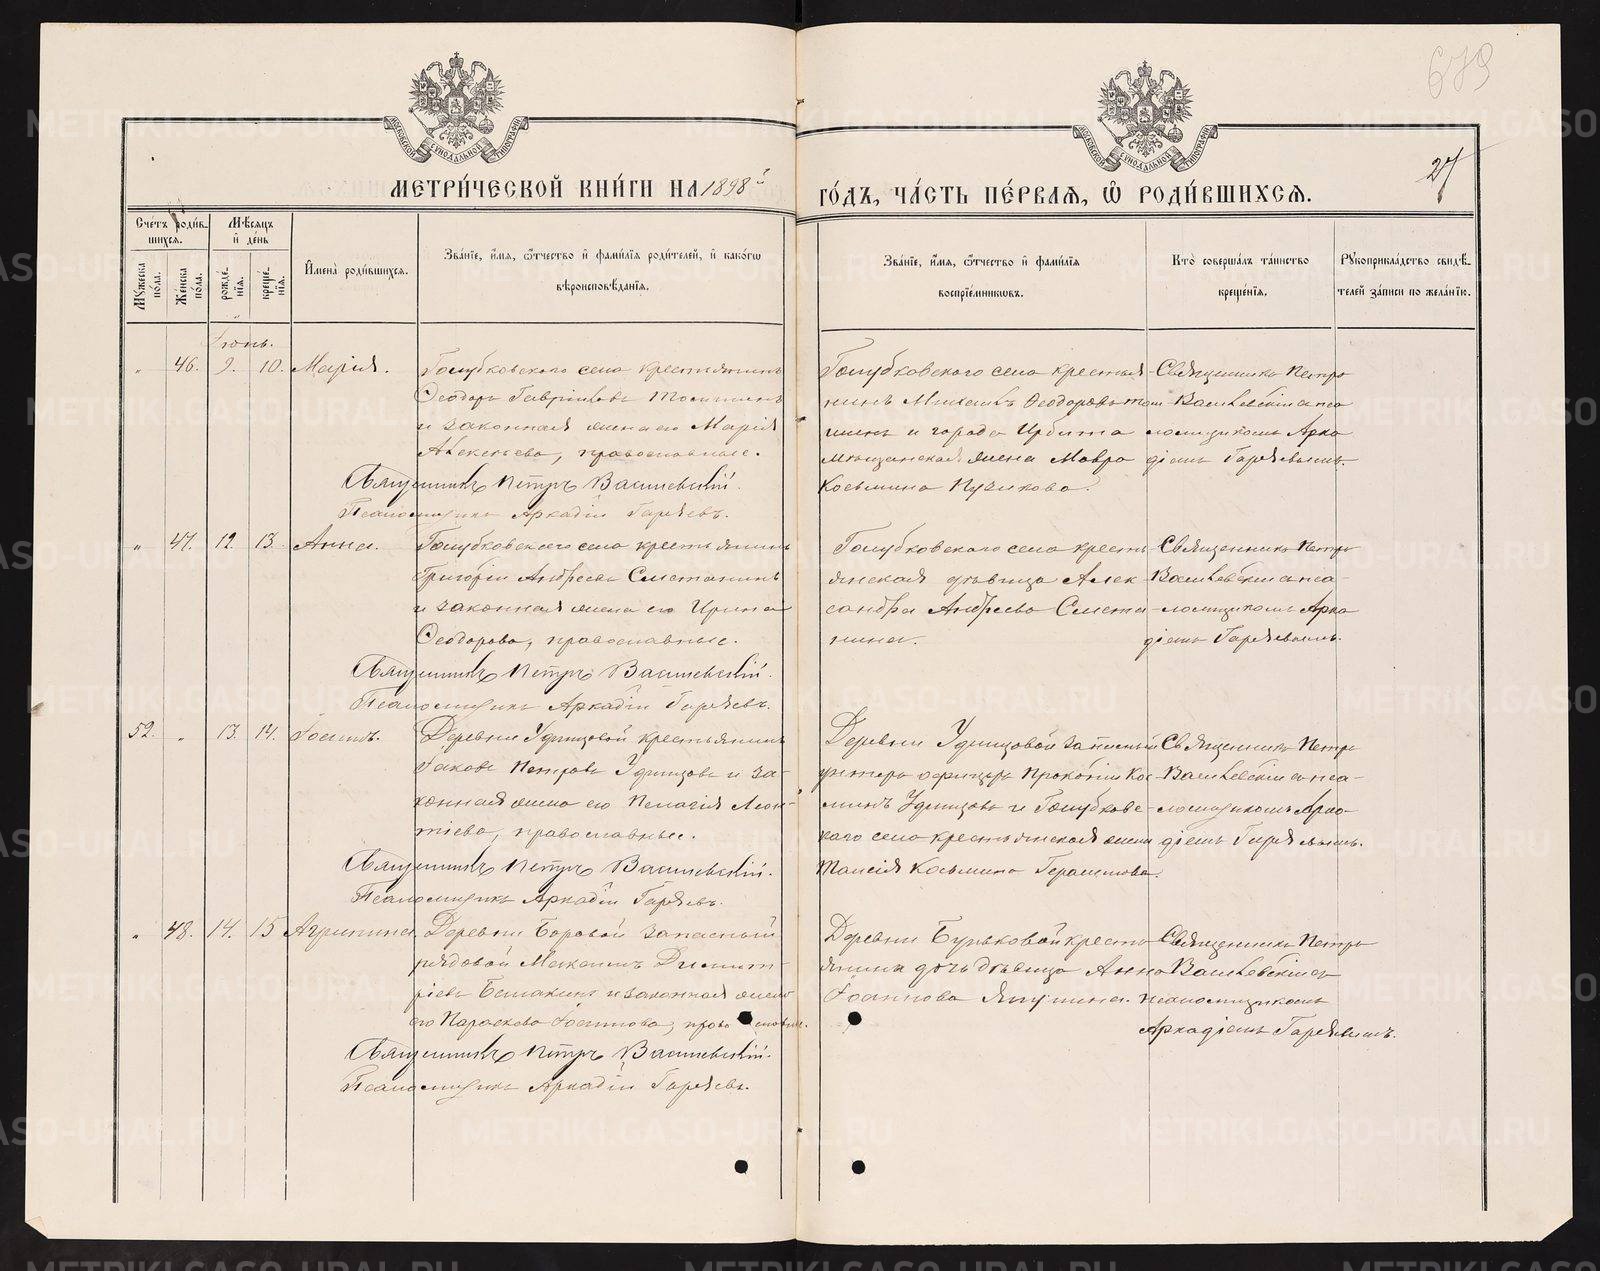 679
27
МЕТРИ́ЧЕСКОЙ КНИ́ГИ НА 1898й
ГО́ДЪ, ЧА́СТЬ ПЕ́РВАЯ, Ѡ҆ РОДИ́ВШИХСЯ.
Сче́тъ роди́в-
шихся.
Мѣ́сяцъ
и҆ де́нь
Мꙋ́жеска по́ла.
Же́нска по́ла.
рожде́нїя.
креще́нїя.
И҆мена̀ роди́вшихся.
Зва́нїе, и҆́мя, ѻ҆́тчество и҆ фами́лїя роди́телей, и҆ како́гѡ
вѣроисповѣ́данїя.
Зва́нїе, и҆́мя, ѻ҆́тчество и҆ фами́лїя
воспрїе́мникѡвъ.
Кто̀ соверша́лъ та́инство
креще́нїя.
Рꙋкоприкла́дство свидѣ́-
телей за́писи по жела́нїю.
Іюнь.
" 46. 9. 10. Марія.
Голубковскаго села крестьянинъ
Ѳеодоръ Гавріиловъ
и законная жена его Марія
Алексѣева, православные.
Священникъ Петръ Василевскій.
Псаломщикъ Аркадій Гаряевъ.
Голубковскаго села крестья-
нинъ Михаилъ Ѳеодоровъ
и города Ирбита
мѣщанская жена Мавра
Косьмина
Священникъ Петръ
Василевскій съ пса-
ломщикомъ Арка-
діемъ Гаряевымъ.
" 47. 12. 13. Анна.
Голубковскаго села крестьянинъ
Григорій Андреевъ Сметанинъ
и законная жена его Ирина
Ѳеодорова, православные.
Священникъ Петръ Василевскій.
Псаломщикъ Аркадій Гаряевъ.
Голубковскаго села кресть-
янская дѣвица Алек-
сандра Андреева Смета-
нина.
Священникъ Петръ
Василевскій съ пса-
ломщикомъ Арка-
діемъ Гаряевымъ.
52. " 13. 14. Іоаннъ.
Деревни Удинцовой крестьянинъ
Іаковъ Петровъ Удинцовъ и за-
конная жена его Пелагія Леон-
тіева, православные.
Священникъ Петръ Василевскій.
Псаломщикъ Аркадій Гаряевъ.
Деревни Удинцовой запасный
унтеръ офицеръ Прокопій Кос-
минъ Удинцовъ и Голубковс-
каго села крестьянская жена
Таисія Косьмина Герасимова.
Священникъ Петръ
Василевскій съ пса-
ломщикомъ Арка-
діемъ Гаряевымъ.
" 48. 14. 15 Агрипина.
Деревни Боровой запасный
рядовой Максимъ Димит-
ріевъ и законная жена
его Параскева Іоаннова, православные.
Священникъ Петръ Василевскій.
Псаломщикъ Аркадій Гаряевъ.
Деревни Бунковой кресть-
янина дочь дѣвица Анна
Іоаннова Якушина.
Священникъ Петръ
Василевскій съ
псаломщикомъ
Аркадіемъ Гаряевымъ.
METRIKI.GASO-URAL.RU